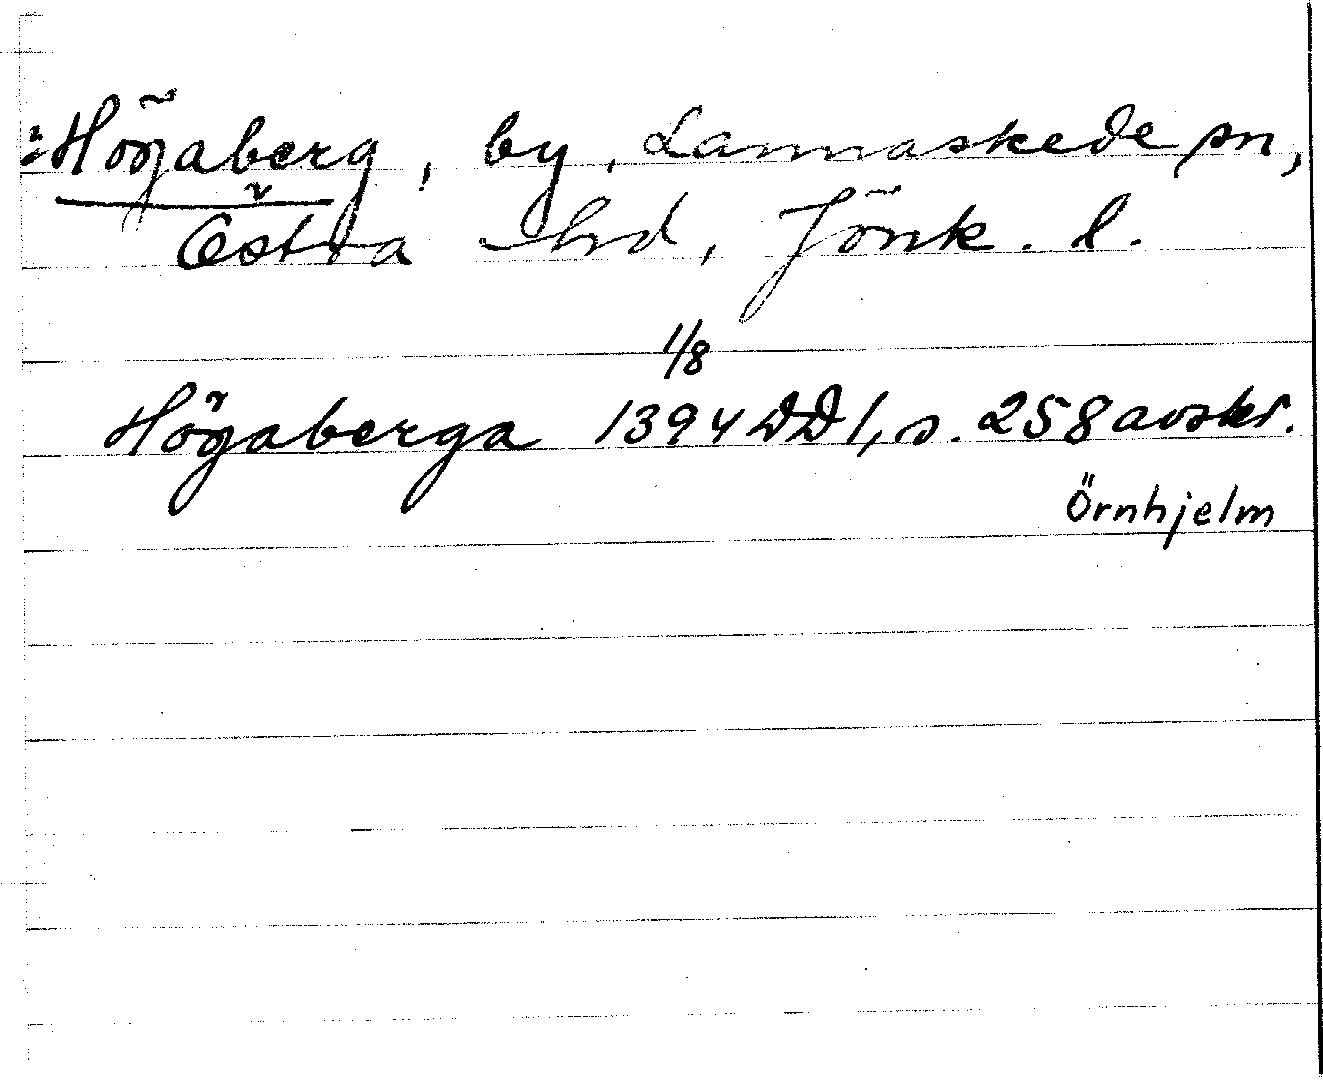 Högaberg, by, Lannaskede sn,
Östra hd, Jönk. l.
1/8
Högaberga 1394 DD1, s. 258 avskr.
Örnhjelm